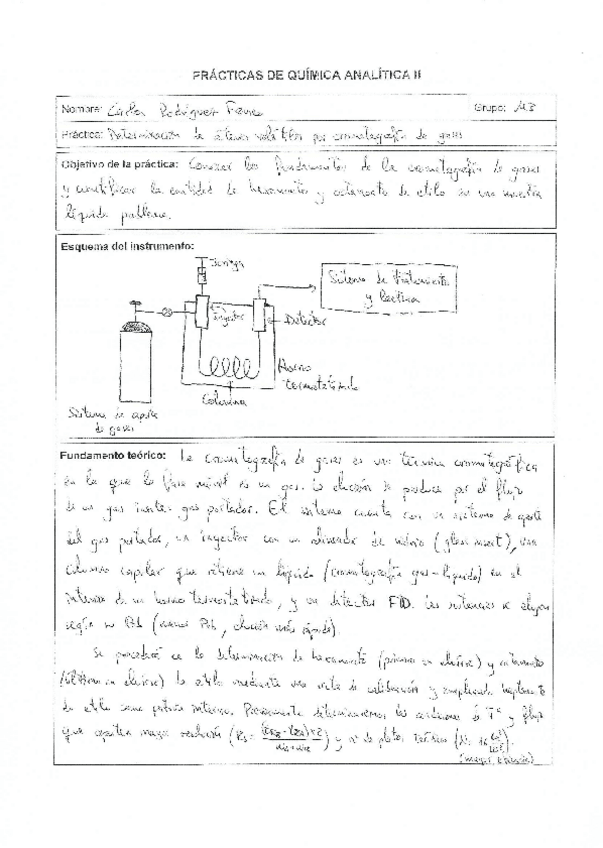 PRÁCTICAS DE QUÍMICA ANALÍTICA II
Nombre: Carlos Rodríguez Grupo: M3
Práctica: Determinación de ésteres volátiles por cromatografía de gases
Objetivo de la práctica: Conocer los fundamentos de la cromatografía de gases
y cuantificar la cantidad de hexanoato y octanoato de etilo en una muestra
líquida problema.
Esquema del instrumento:
Jeringa
Sistema de Tratamiento
y lectura
Inyector
Detector
Horno
termostatizado
Columna
Sistema de aporte
de gases
Fundamento teórico: La cromatografía de gases es una técnica cromatográfica
en la que la fase móvil es un gas. La elución se produce por el flujo
de un gas inerte: gas portador. El sistema cuenta con un sistema de aporte
del gas portador, un inyector con un alineador de vidrio (glass insert), una
columna capilar que retiene un líquido (cromatografía gas-líquido) en el
interior de un horno termostatizado, y un detector FID. Las sustancias se eluyen
según su Peb (menor Peb, elución más rápida).
Se procederá a la determinación de hexanoato (primero en eluirse) y octanoato
en eluirse) de etilo mediante una recta de calibración y empleando heptanoato
de etilo como patrón interno. Previamente determinaremos las condiciones de Tª y flujo
que aportan mayor resolución (Rs= ) y nº de platos teóricos (N=